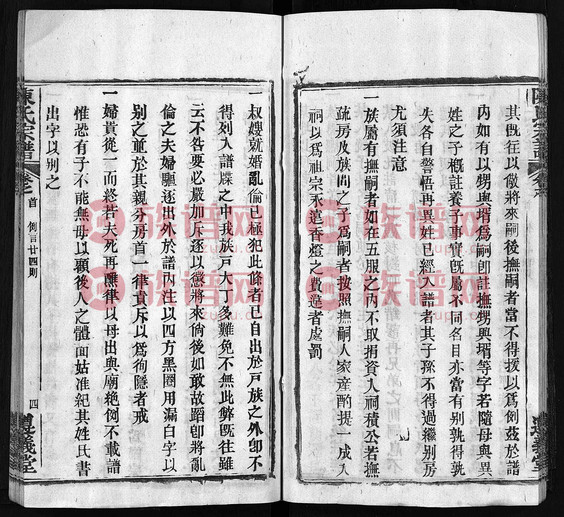 其旣往以儆將來嗣後撫嗣者當不得援以爲例茲於譜
内如有以甥與壻爲嗣卽註撫甥與壻等字若隨母與異
姓之子槪註養子事實旣屬不同名目亦當有别孰得孰
失各自警悟再異姓已經入譜者其子孫不得過繼别房
尤須注意
一族屬有撫嗣者如在五服之内不取捐資入祠積公若撫
疏房及族間之子爲嗣者按照撫嗣人家産酌提一成入
祠以爲祖宗永遠香燈之費違者處罰
一叔嫂就婚亂倫已極犯此條者已自出於戸族之外卽不
得列入譜牒之中我族戸大丁多難免不無此弊旣往雖
云不咎要必嚴加斥逐以懲將來倘後如敢故蹈卽將亂
倫之夫婦驅逐出外於譜内注以四方黑圈用漏白字以
别之並於其親分房首一律貴斥以爲徇隱者戒
一婦貴從一而終若夫死再醮律以母出與廟絶例不載譜
惟恐有子不能無母以顧後人之體面姑准紀其姓氏書
出字以别之
陳氏宗譜
卷之首
例言廿四則
四
義堂
族谱网